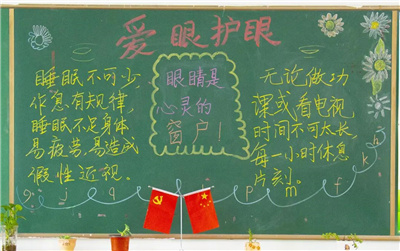 爱眼护眼
睡眠不可少,
作息有规律,
睡眠不足身体
易疲劳,易造成
假性近视。
眼睛是
心灵的
窗户!
无论做功
课或看电视
时间不可太长,
每一小时休息
片刻。
g j q p m f k h